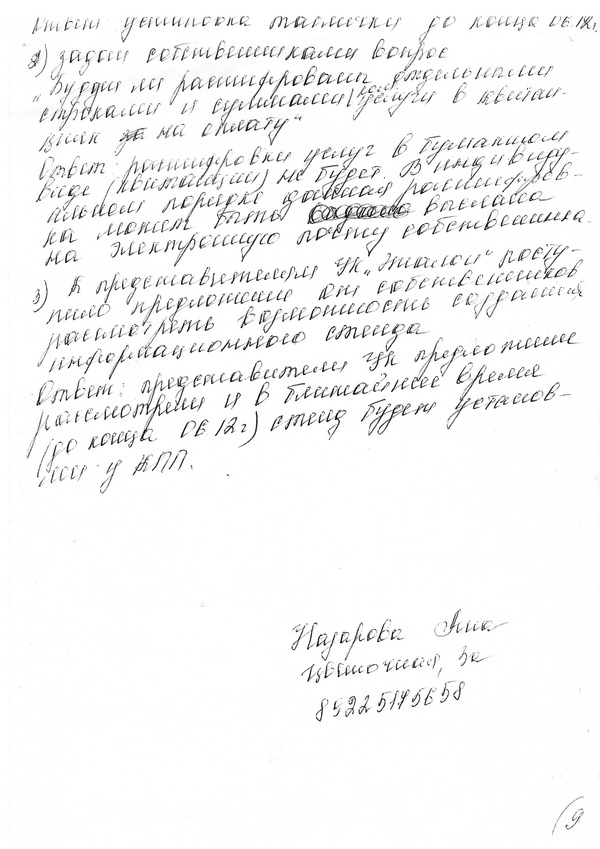 Ответ: установка таблички до конца 06.12г.
2) задан собственниками вопрос
„Будут ли расшифрованы отдельными
строками и суммами услуги в квитан-
циях на оплату"
Ответ: расшифровки услуг в бумажном
виде (квитанции) не будет. В индивиду-
альном порядке данная расшифров-
ка может быть выслана
на электронную почту собственника.
3) К представителям УК „Эталон" посту-
пило предложение от собственников
рассмотреть возможность создания
информационного стенда
Ответ: представители УК предложение
рассмотрели и в ближайшее время
(до конца 06.12г) стенд будет установ-
лен у КПП.
Назарова Яна
Цветочная, 3а
(9